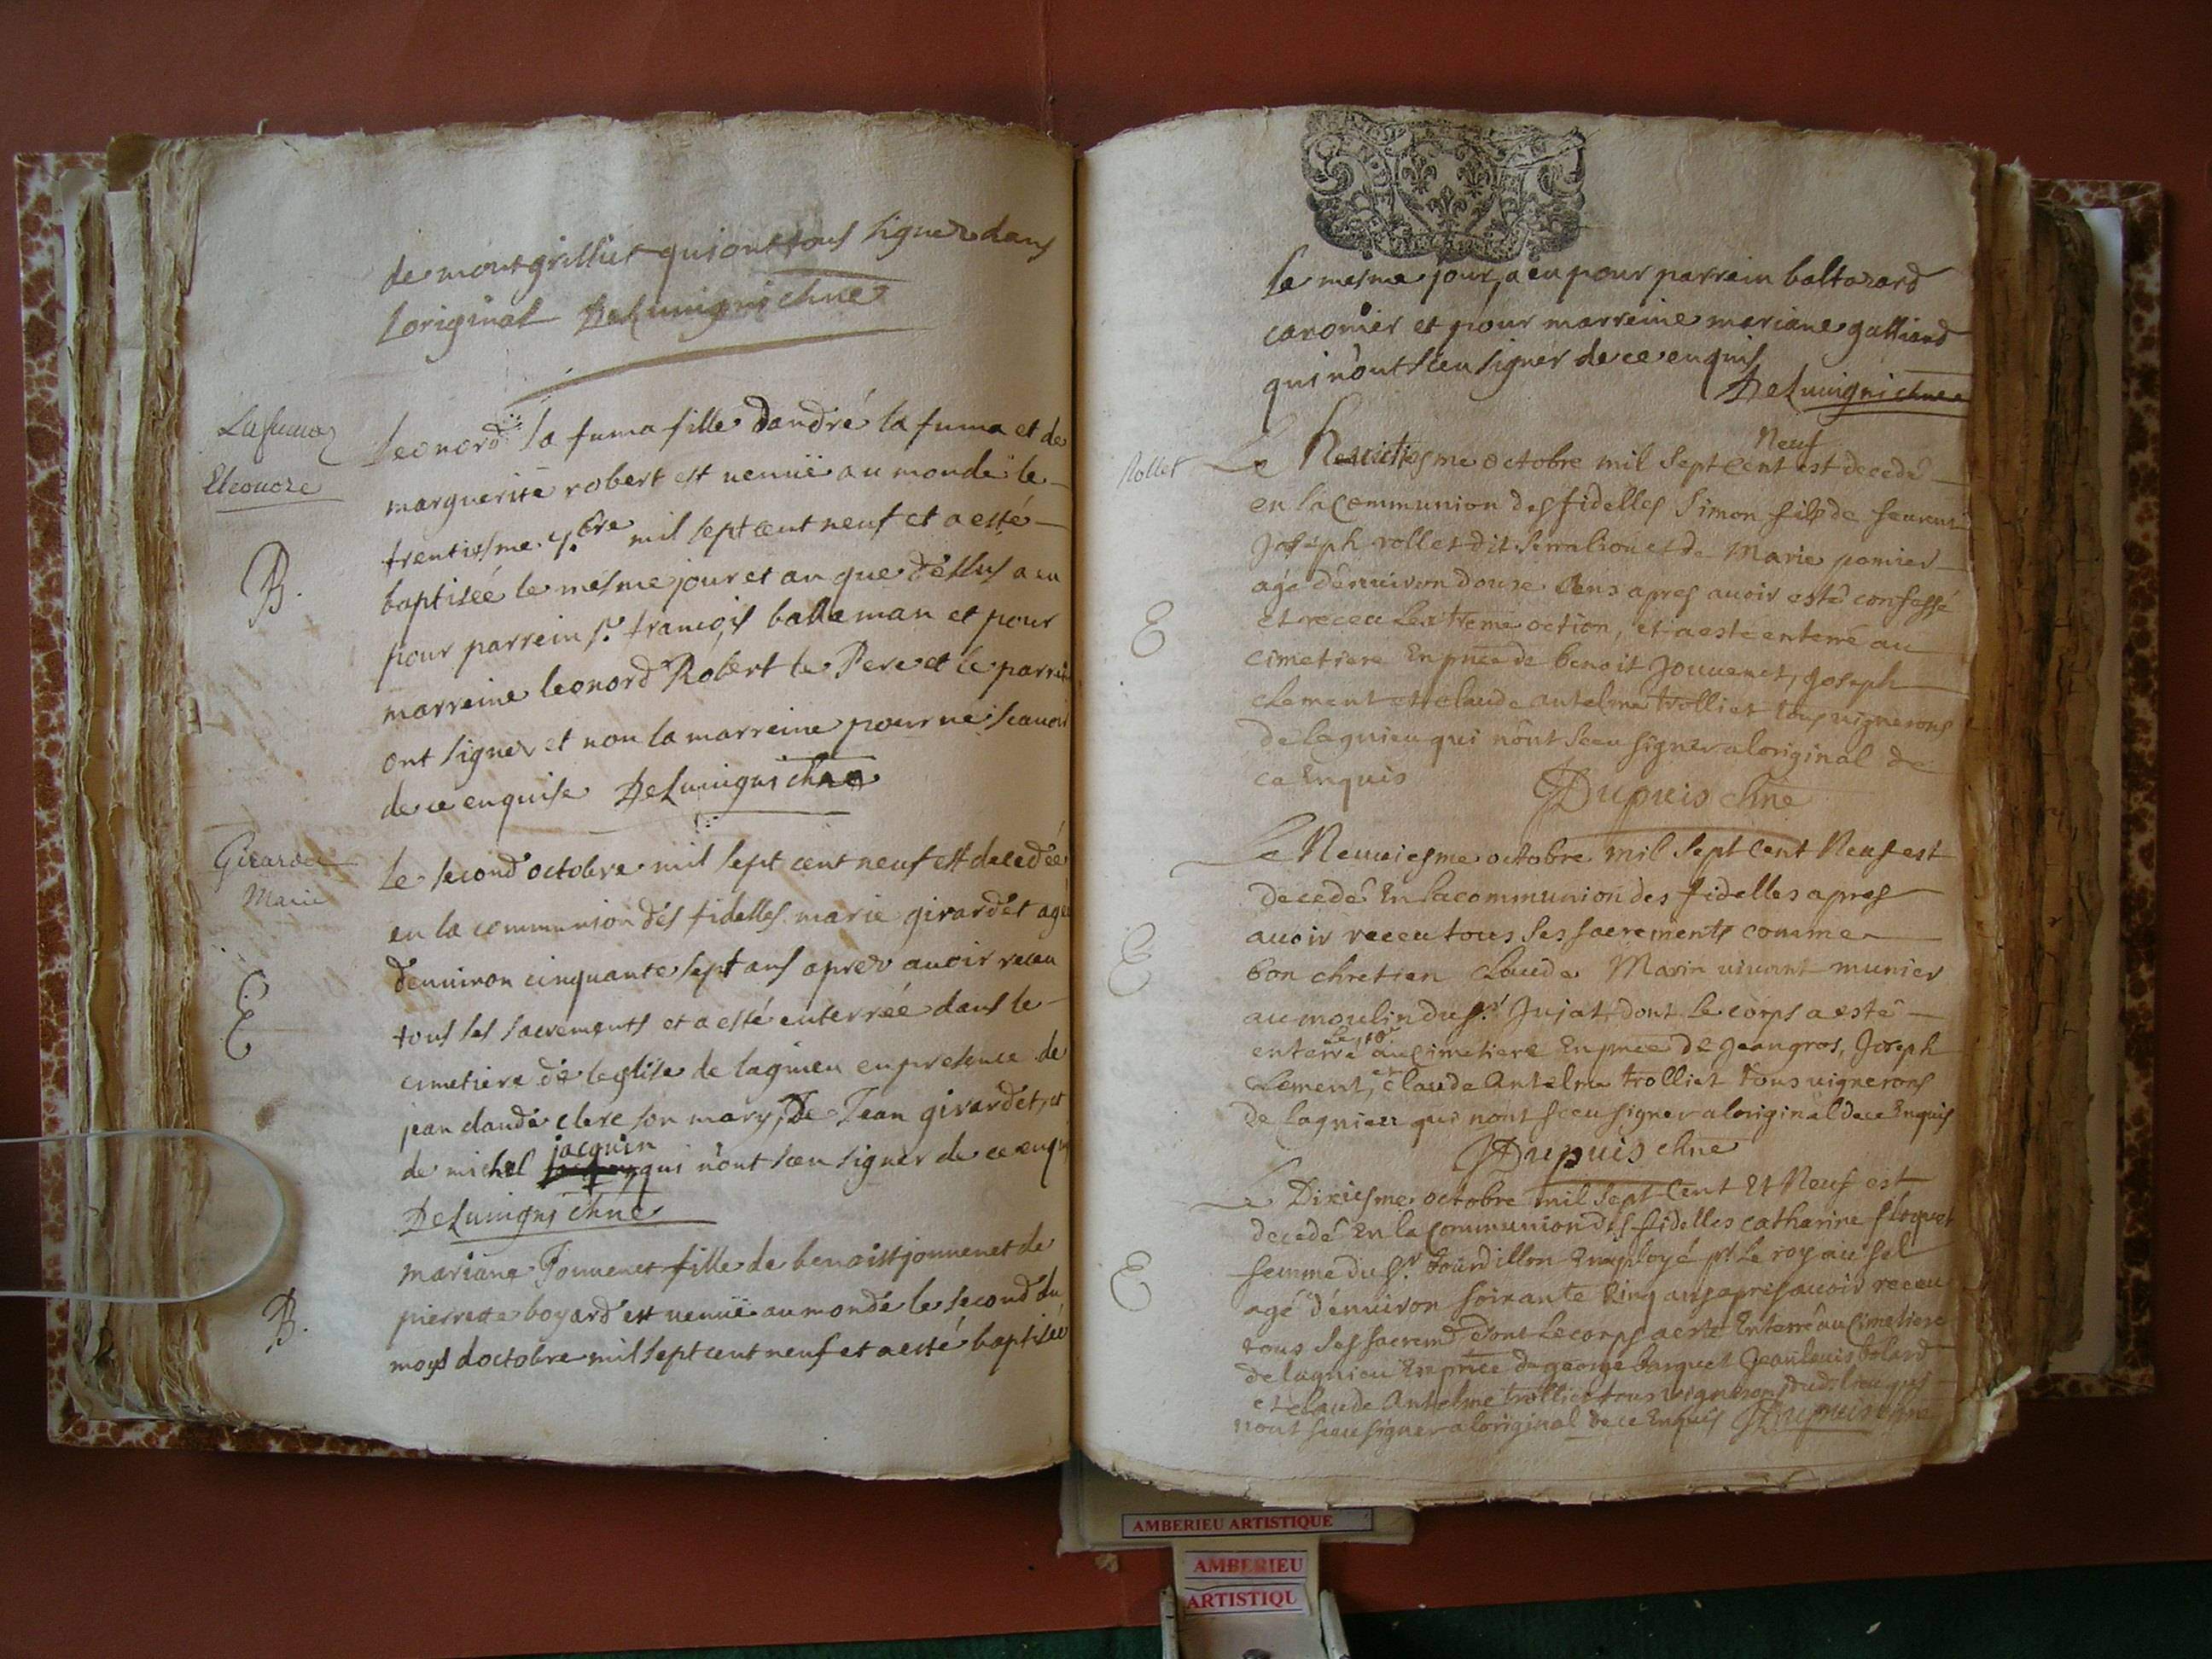 de montgrilliet qui ont tous signez dans
loriginal DeLuvigni chne
Lafuma
Eleonore
B.
leonord la fuma fille dandré la fuma et de
marguerite robert est venuë au monde le
trentiesme 7.bre mil sept cent neuf et a esté
baptisée le mesme jour et an que dessus a eu
pour parrein sr. françois balleman et pour
marreine leonord Robert le Pere et le parrein
ont signez et non la marreine pour ne scavoir
de ce enquise DeLuvigni chne
Girardet
Marie
E
le second octobre mil sept cent neuf est decedée
en la communion des fidelles marie girardet agée
denviron cinquante sept ans aprez avoir receu
tous les sacrements et a esté enterrée dans le
cimetiere de leglise de lagnieu en presence de
jean claude clerc son mary, De Jean girardet, et
de michel jacquin qui n'ont sceu signer de ce enquis
DeLuvigni chne
B.
mariane Jouvenet fille de benoist jouvenet de
pierrette boyard est venuë au monde le second du
moys doctobre mil sept cent neuf et a esté baptisée
le mesme jour, a eu pour parrein baltazard
caronier et pour marreine mariane galliand
qui n'ont sceu signer de ce enquis
DeLuvigni chne
Rollet
E
Le huictiesme octobre mil sept cent Neuf est decedé
en la Communion des fidelles Simon fils de feurent
Joseph rollet dit et de Marie pomier
agé d'environ douze Ans apres avoir esté confessé
et receu Lextreme oction, et a este enterré au
cimetiere En pnce de benoit Jouvenet, Joseph
Clement et claude antelme trolliet tous vignerons
de lagnieu qui n'ont sceu signer a loriginal de
ce Enquis Dupuis chne
E
Le Neuviesme octobre mil sept Cent Neuf est
decedé En la communion des fidelles apres
avoir receu tous ses sacrements comme
bon chretien Claude Marin vivant munier
au moulin du sr. Jujat dont le corps a esté
enterré le 10e au Cimetiere En pnce de Jean gros, Joseph
Clement, et claude Antelme trolliet tous vignerons
de lagnieu qui nont sceu signer a loriginal de ce Enquis
Dupuis chne
E
Le Dixiesme octobre mil sept Cent Et Neuf est
decedé En la Communion des fidelles catherine floquet
femme du sr. tourdillon Employé pr. le roy au sel
agé d'environ soixante Cinq ans apres avoir receu
tous ses sacremt. dont le corps a esté Enterré au Cimetiere
de lagnieu En pnce de george barquet Jean louis bolard
et claude Antelme trolliet tous vignerons dud. lieu qui
n'ont sceu signer a loriginal de ce Enquis Dupuis chne
AMBERIEU ARTISTIQUE
AMBERIEU
ARTISTIQU